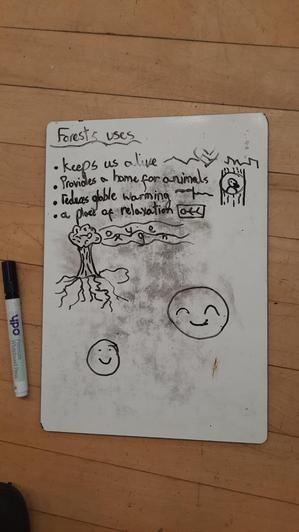 Forests uses
• keeps us alive
• Provides a home for animals
• Reduces glable warming
• a place of relaxation
oxygen
odn